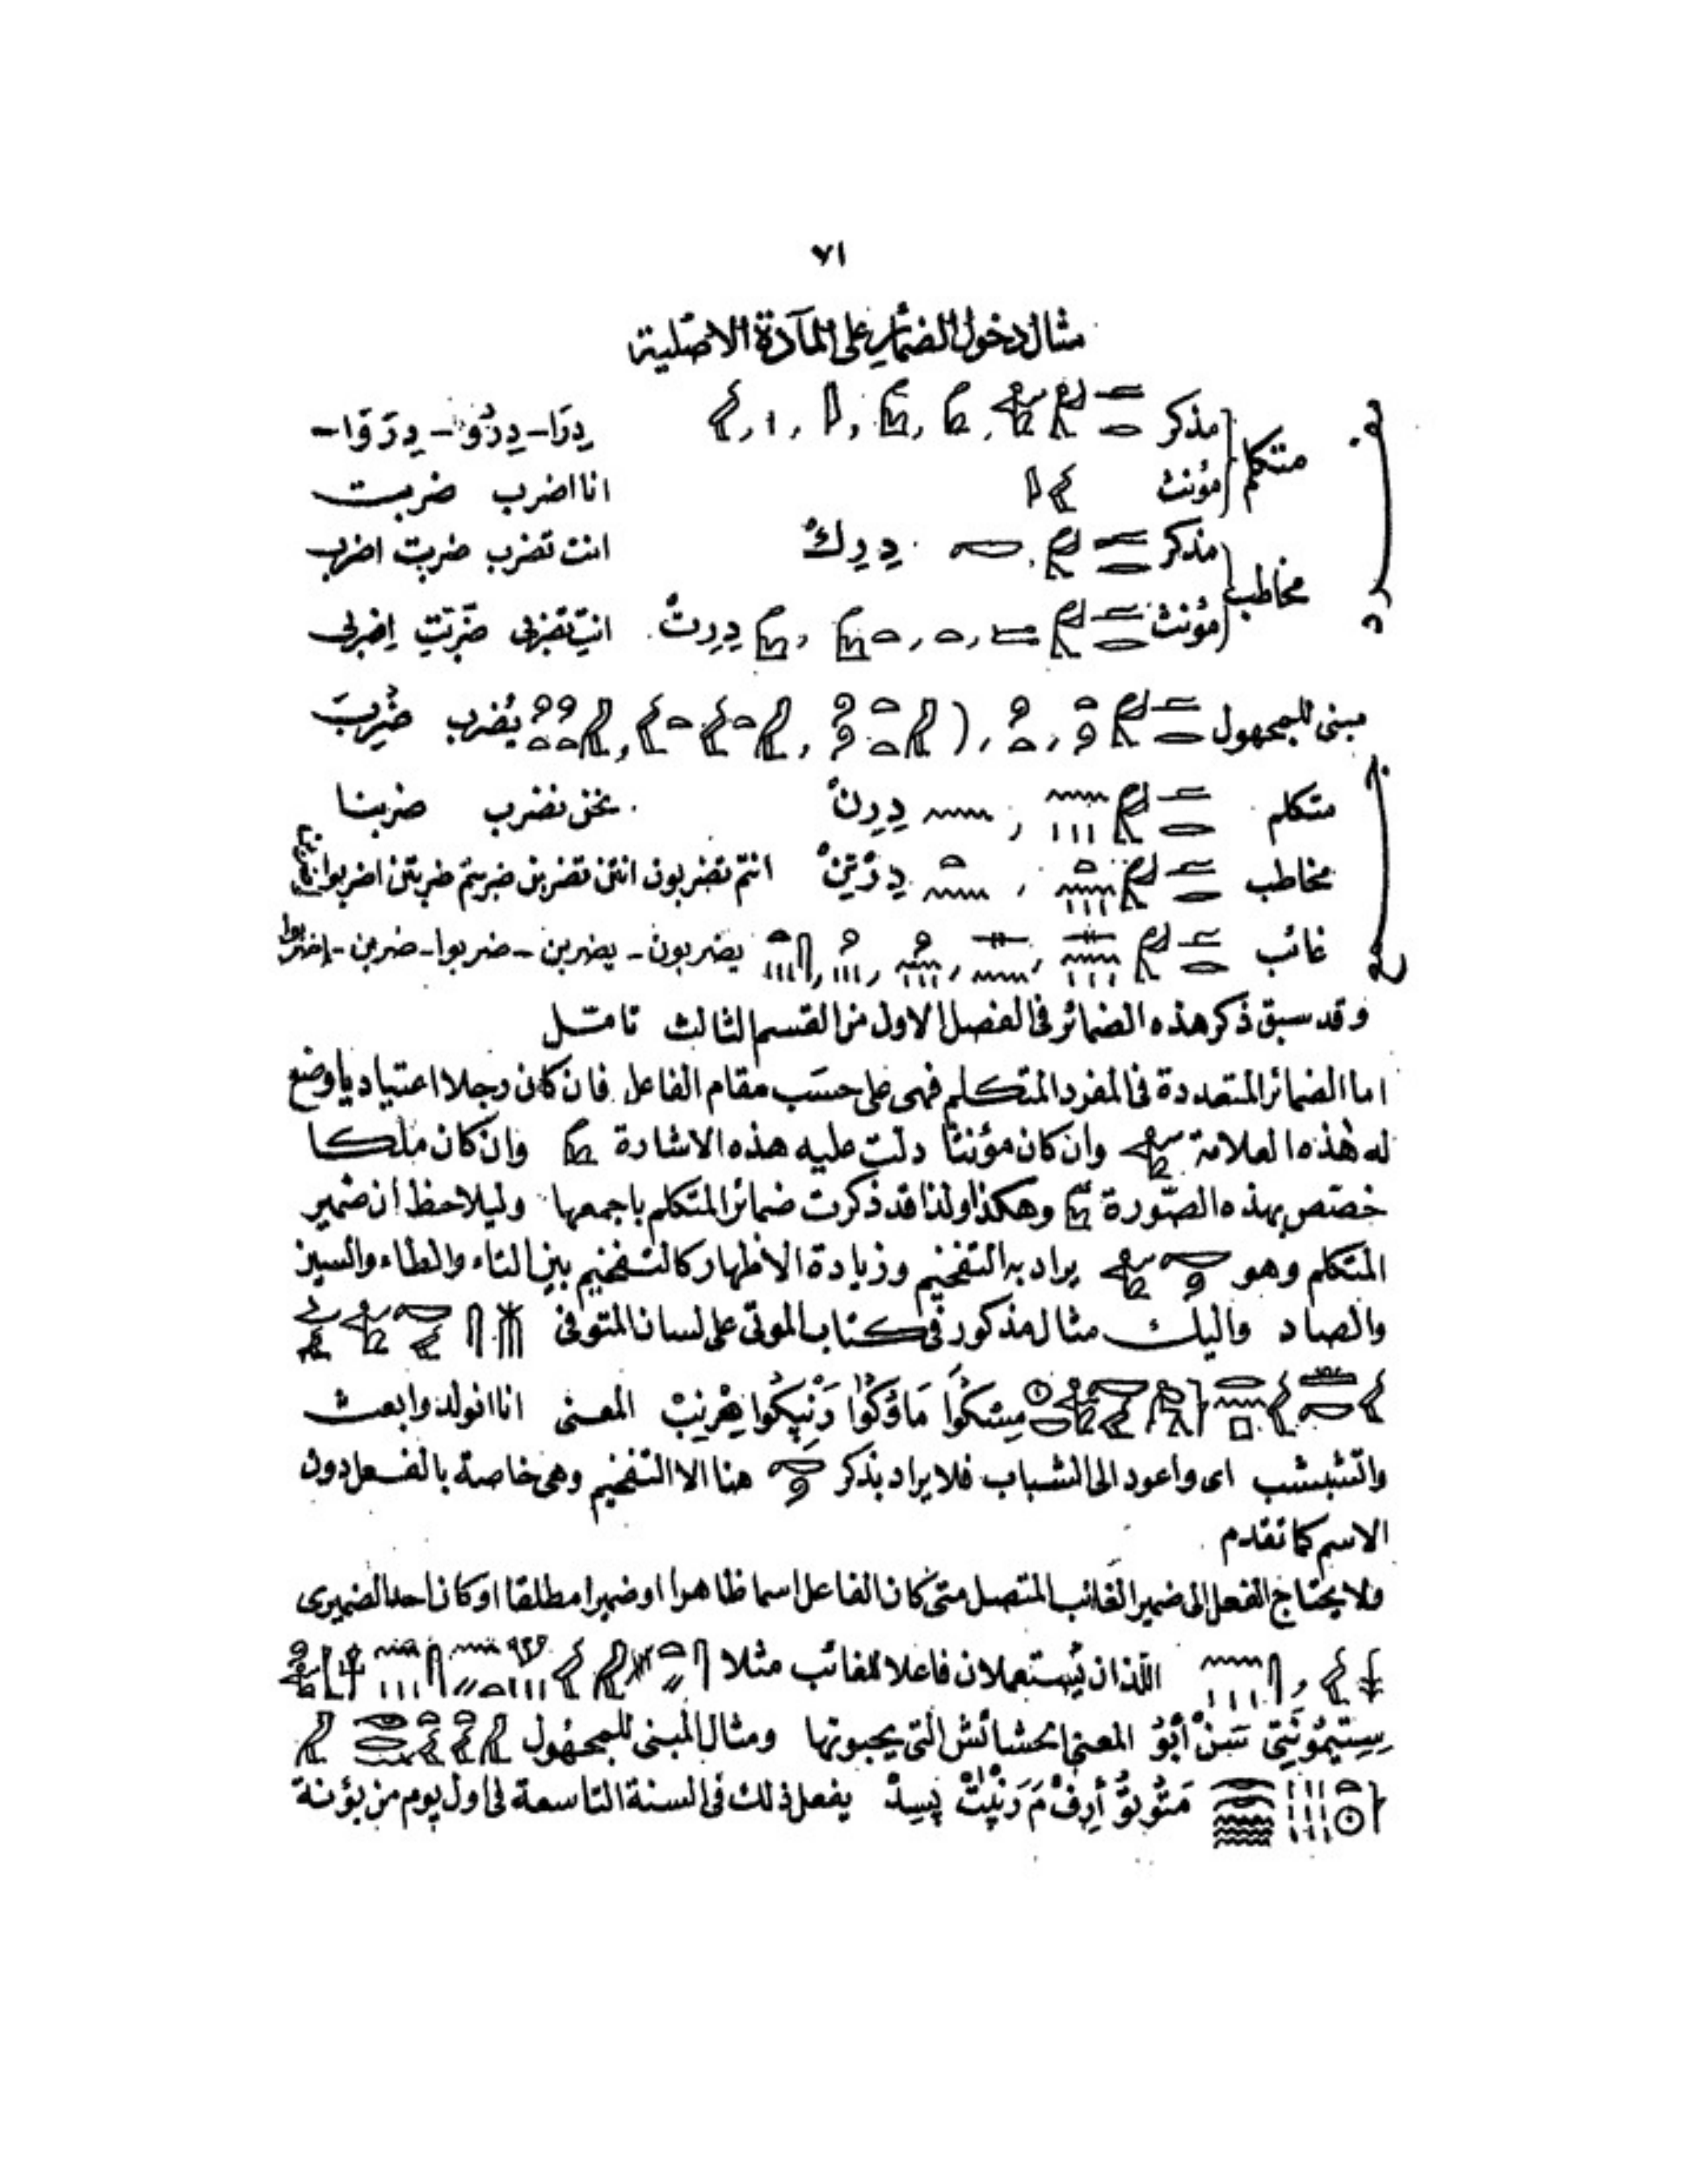 ٧١
مثال دخول الضمائر على المآدة الاصلية
مفرد متكلم مذكر دِرَا - دِرُو - دِرَوَا -
مؤنث انا اضرب ضربت
مخاطب مذكر دِرِكْ انت تضرب ضربت اضرب
مؤنث دِرِتْ انتِ تضربى ضربتِ اِضربى
مبنى للمجهول يُضرب ضُرِبَ
جمع متكلم دِرِنْ نحن نضرب ضربنا
مخاطب دِرْتِنْ انتم تضربون انتن تضربن ضربتم ضربتن اضربوا
غائب يضربون - يضربن - ضربوا - ضربن -
وقد سبق ذكر هذه الضمائر فى الفصل الاول من القسم الثالث تامّل
اما الضمائر المتعددة فى المفرد المتكلم فهى على حسَب مقام الفاعل فان كان رجلا اعتياديا وضع
له هٰذه العلامة وان كان مؤنثا دلت عليه هذه الاشارة وان كان ملكا
خصّص بهذه الصّورة وهكذا ولذا قد ذكرت ضمائر المتكلم باجمعها وليلاحظ ان ضمير
المتكلم وهو يراد به التفخيم وزيادة الاظهار كالتفخيم بين التاء والطاء والسين
والصاد واليك مثال مذكور فى كتاب الموتى على لسان المتوفى
مِسْكُوَا مَاوُكُوْا رَنْبِكُوا هِرْنِبْ المعنى انا اتولد وابعث
واتشبشب اى واعود الى الشباب فلا يراد بذكر هنا الا التفخيم وهى خاصة بالفعل دون
الاسم كما تقدم
ولا يحتاج الفعل الى ضمير الغائب المتصل متى كان الفاعل اسما ظاهرا او ضميرا مطلقا او كان احد الضميرى
اللذان يُستعملان فاعلا للغائب مثلا
سِتِيمُونَتِى سَنْ أَبُوُ المعنى الحشائش التى يحبونها ومثال المبنى للمجهول
مَتُوتُوُ أَرِفْ مَ رَنْبِتْ بِسِدْ يفعل ذلك فى السنة التاسعة فى اول يوم من بؤنة